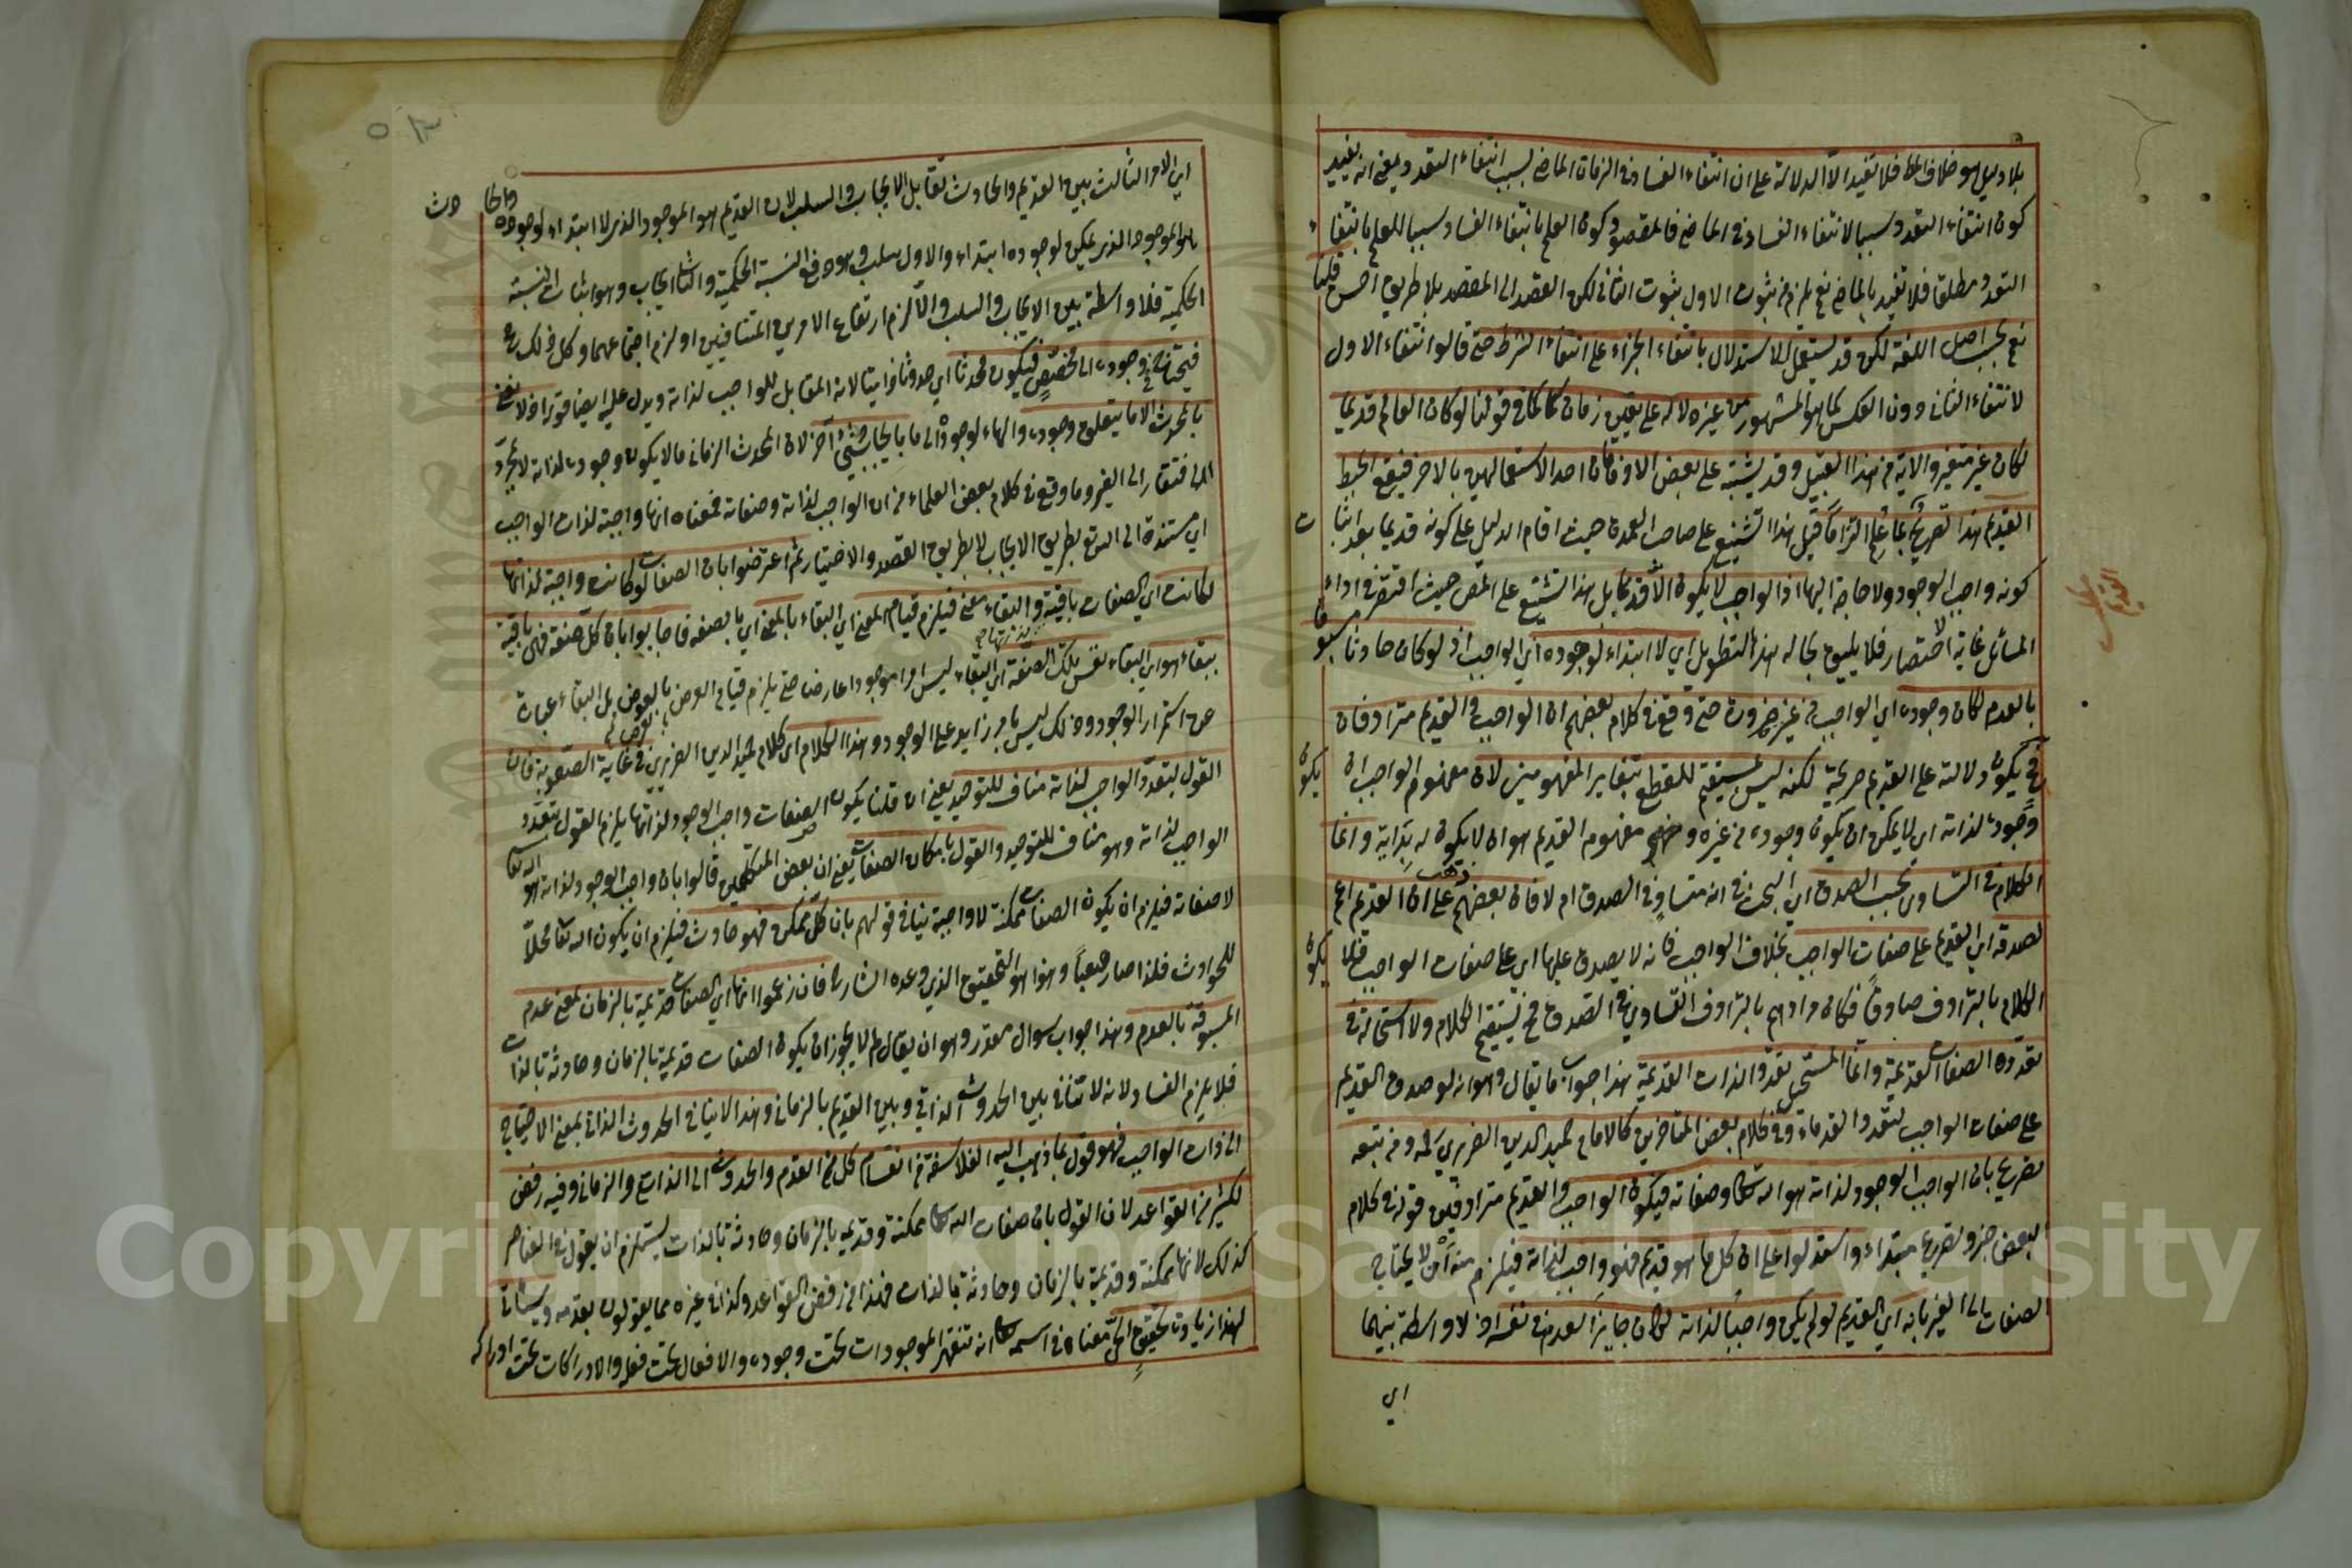 بلا دليل هو خلاف الظ فلا تفيد الا الدلالة على ان انتفاء الفساد في الزمان الماضي بسبب انتفاء التعدد ويعني انه يفيد
كون انتفاء التعدد سببا لانتفاء الفساد في الماضي فالمقصود كون العلم بانتفاء الفساد سببا للعلم بانتفاء
التعدد مطلقا فلا تفيد بالماضي نعم يلزم من ثبوت الاول ثبوت الثاني لكن القصد الى المقصد بلا طريق احسن قلنا
نعم بحسب اصل اللغة لكن قد يستعمل للاستدلال بانتفاء الجزاء على انتفاء الشرط حتى قالوا انتفاء الاول
لانتفاء الثاني دون العكس كما هو المشهور من غير دلالة على تعيين زمان كما في قولنا لو كان العالم قديما
لكان غير متغير والاية من هذا القبيل وقد يشتبه على بعض الاذهان احد الاستعمالين بالاخر فيقع الخبط
القديم هذا تصريح بما علم التزاما قيل هذا تشنيع على صاحب العمدة حيث اقام الدليل على كونه قديما بعد اثبات
كونه واجب الوجود ولا حاجة اليها اذ الواجب لا يكون الا قديما بل هذا تشنيع على المص حيث اقتصر في اداء
المسائل غاية الاختصار فلا يليق بحاله هذا التطويل اي لا ابتداء لوجوده اي الواجب اذ لو كان حادثا مسبوقا
بالعدم لكان وجوده اي الواجب من غيره ضرورة حتى وقع في كلام بعضهم ان الواجب والقديم مترادفان
فح يكون دلالته على القديم صريحة لكنه ليس بمستقيم للقطع بتغاير المفهومين لان مفهوم الواجب ان يكون
وجوده لذاته اي لا يمكن ان يكون وجوده من غيره ومفهوم القديم هو ان لا يكون له بداية وانما
الكلام في التساوي بحسب الصدق اي البحث في انه متساو في الصدق ام لا فان بعضهم ذهب على ان القديم اعم
لصدقه اي القديم على صفات الواجب بخلاف الواجب فانه لا يصدق عليها اي على صفات الواجب فلا يكون
الكلام بالترادف صادقا فكان مرادهم بالترادف التساوي في الصدق فح يستقيم الكلام ولا استحالة في
تعدد الصفات القديمة وانما المستحيل تعدد الذات القديمة هذا جواب ما يقال وهو انه لو صدق القديم
على صفات الواجب لتعدد القدماء وفي كلام بعض المتاخرين كالامام حميد الدين الضريري رحمه ومن تبعه
تصريح بان الواجب الوجود لذاته هو الله تعالى وصفاته فيكون الواجب والقديم مترادفين قوله في كلام
البعض خبر وتصريح مبتداء واستدلوا على ان كل ما هو قديم فهو واجب لذاته فيلزم منه ان لا يحتاج
الصفات الى الغير بانه اي القديم لو لم يكن واجبا لذاته لكان جايز العدم في نفسه اذ لا واسطة بينهما
اي
القديم
اي الامر الثالث بين القديم والحادث تقابل الايجاب والسلب لان القديم هو الموجود الذي لا ابتداء لوجوده والحادث
هو الموجود الذي يمكن لوجوده ابتداء والاول سلب وهو رفع النسبة الحكمية والثاني ايجاب وهو اثبات النسبة
الحكمية فلا واسطة بين الايجاب والسلب والا لزم ارتفاع الامرين المتنافيين او لزم اجتماعهما وكل ذلك مح
فيحتاج في وجوده الى مخصص فيكون محدثا اي حدوثا ذاتيا لانه المقابل للواجب لذاته ويدل عليه ايضا قوله اذ لا نعني
بالمحدث الا ما يتعلق وجوده والهاء لوجوده الى ما بايجاد شيء اخر لان المحدث الزماني ما لا يكون وجوده لذاته لا مجرد
الافتقار الى الغير وما وقع في كلام بعض العلماء من ان الواجب لذاته وصفاته فمعناه انها واجبة لذات الواجب
اي مستندة الى الله تع بطريق الايجاب لا بطريق القصد والاختيار ثم اعترضوا بان الصفات لو كانت واجبة لذاتها
لكانت اي الصفات باقية والبقاء معنى فيلزم قيام المعنى اي البقاء بالمعنى اي بالصفة فاجابوا بان كل صفة فهي باقية
ببقاء هو اي البقاء نفس تلك الصفة اي البقاء ليس امرا موجودا عارضا حتى يلزم قيام العرض بالعرض بل البقاء عبارة
عن استمرار الوجود وذلك ليس بامر زايد على الوجود وهذا الكلام اي كلام حميد الدين الضريري في غاية الصعوبة فان
القول بتعدد الواجب لذاته مناف للتوحيد يعني ان قلنا يكون الصفات واجب الوجود لذاتها يلزم القول بتعدد
الواجب لذاته وهو مناف للتوحيد والقول بامكان الصفات يعني ان بعض المتكلمين قالوا بان واجب الوجود لذاته هو الله تعا
لا صفاته فيلزم ان يكون الصفات ممكنة لا واجبة ينافي قولهم بان كل ممكن فهو حادث فيلزم ان يكون الله تعا محلا
للحوادث فلذا صار صعبا وهذا هو التحقيق الذي وعده الشارح فان زعموا انها اي الصفات قديمة بالزمان بمعنى عدم
المسبوقية بالعدم وهذا جواب سوال مقدر وهو ان يقال لم لا يجوز ان يكون الصفات قديمة بالزمان وحادثة بالذات
فلا يلزم الفساد لانه لا تنافي بين الحدوث الذاتي وبين القديم بالزمان وهذا لا ينافي الحدوث الذاتي بمعنى الاحتياج
الى ذات الواجب فهو قول بما ذهب اليه الفلاسفة من انقسام كل من القدم والحدوث الى الذاتي والزماني وفيه رفض
لكثير من القواعد لان القول بان صفات الله تعالى ممكنة وقديمة بالزمان وحادثة بالذات يستلزم ان يقول في العناصر
كذلك لانها ممكنة وقديمة بالزمان وحادثة بالذات فهذا من رفض القواعد وكذا في غيره مما يقولون بقدمه وسياتي
لهذا زيادة تحقيق الحي معناه في اسمه تعالى انه تنقهر الموجودات تحت وجوده والافعال تحت فعله والادراكات تحت ادراكه